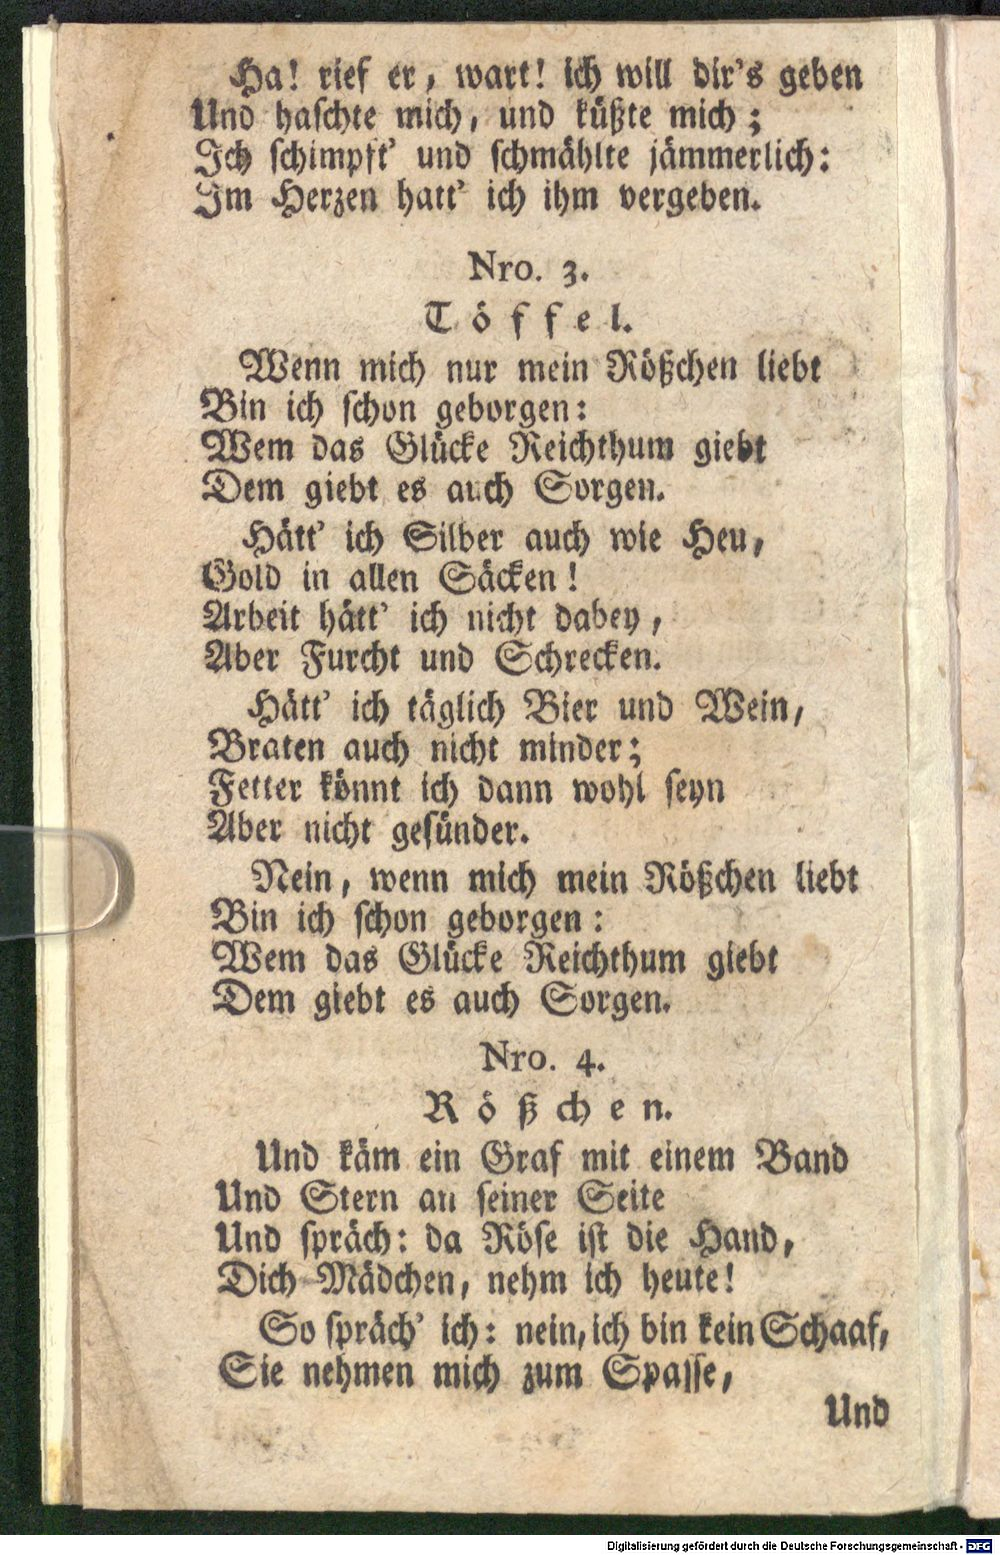 Ha! rief er, wart! ich will dir's geben
Und haschte mich, und küßte mich;
Ich schimpft' und schmählte jämmerlich:
Im Herzen hatt' ich ihm vergeben.
Nro. 3.
Töffel.
Wenn mich nur mein Rößchen liebt
Bin ich schon geborgen:
Wem das Glücke Reichthum giebt
Dem giebt es auch Sorgen.
Hätt' ich Silber auch wie Heu,
Gold in allen Säcken!
Arbeit hätt' ich nicht dabey,
Aber Furcht und Schrecken.
Hätt' ich täglich Bier und Wein,
Braten auch nicht minder;
Fetter könnt ich dann wohl seyn
Aber nicht gesünder.
Nein, wenn mich mein Rößchen liebt
Bin ich schon geborgen:
Wem das Glücke Reichthum giebt
Dem giebt es auch Sorgen.
Nro. 4.
Rößchen.
Und käm ein Graf mit einem Band
Und Stern an seiner Seite
Und spräch: da Röse ist die Hand,
Dich Mädchen, nehm ich heute!
So spräch' ich: nein, ich bin kein Schaaf,
Sie nehmen mich zum Spasse,
Und
Digitalisierung gefördert durch die Deutsche Forschungsgemeinschaft - DFG